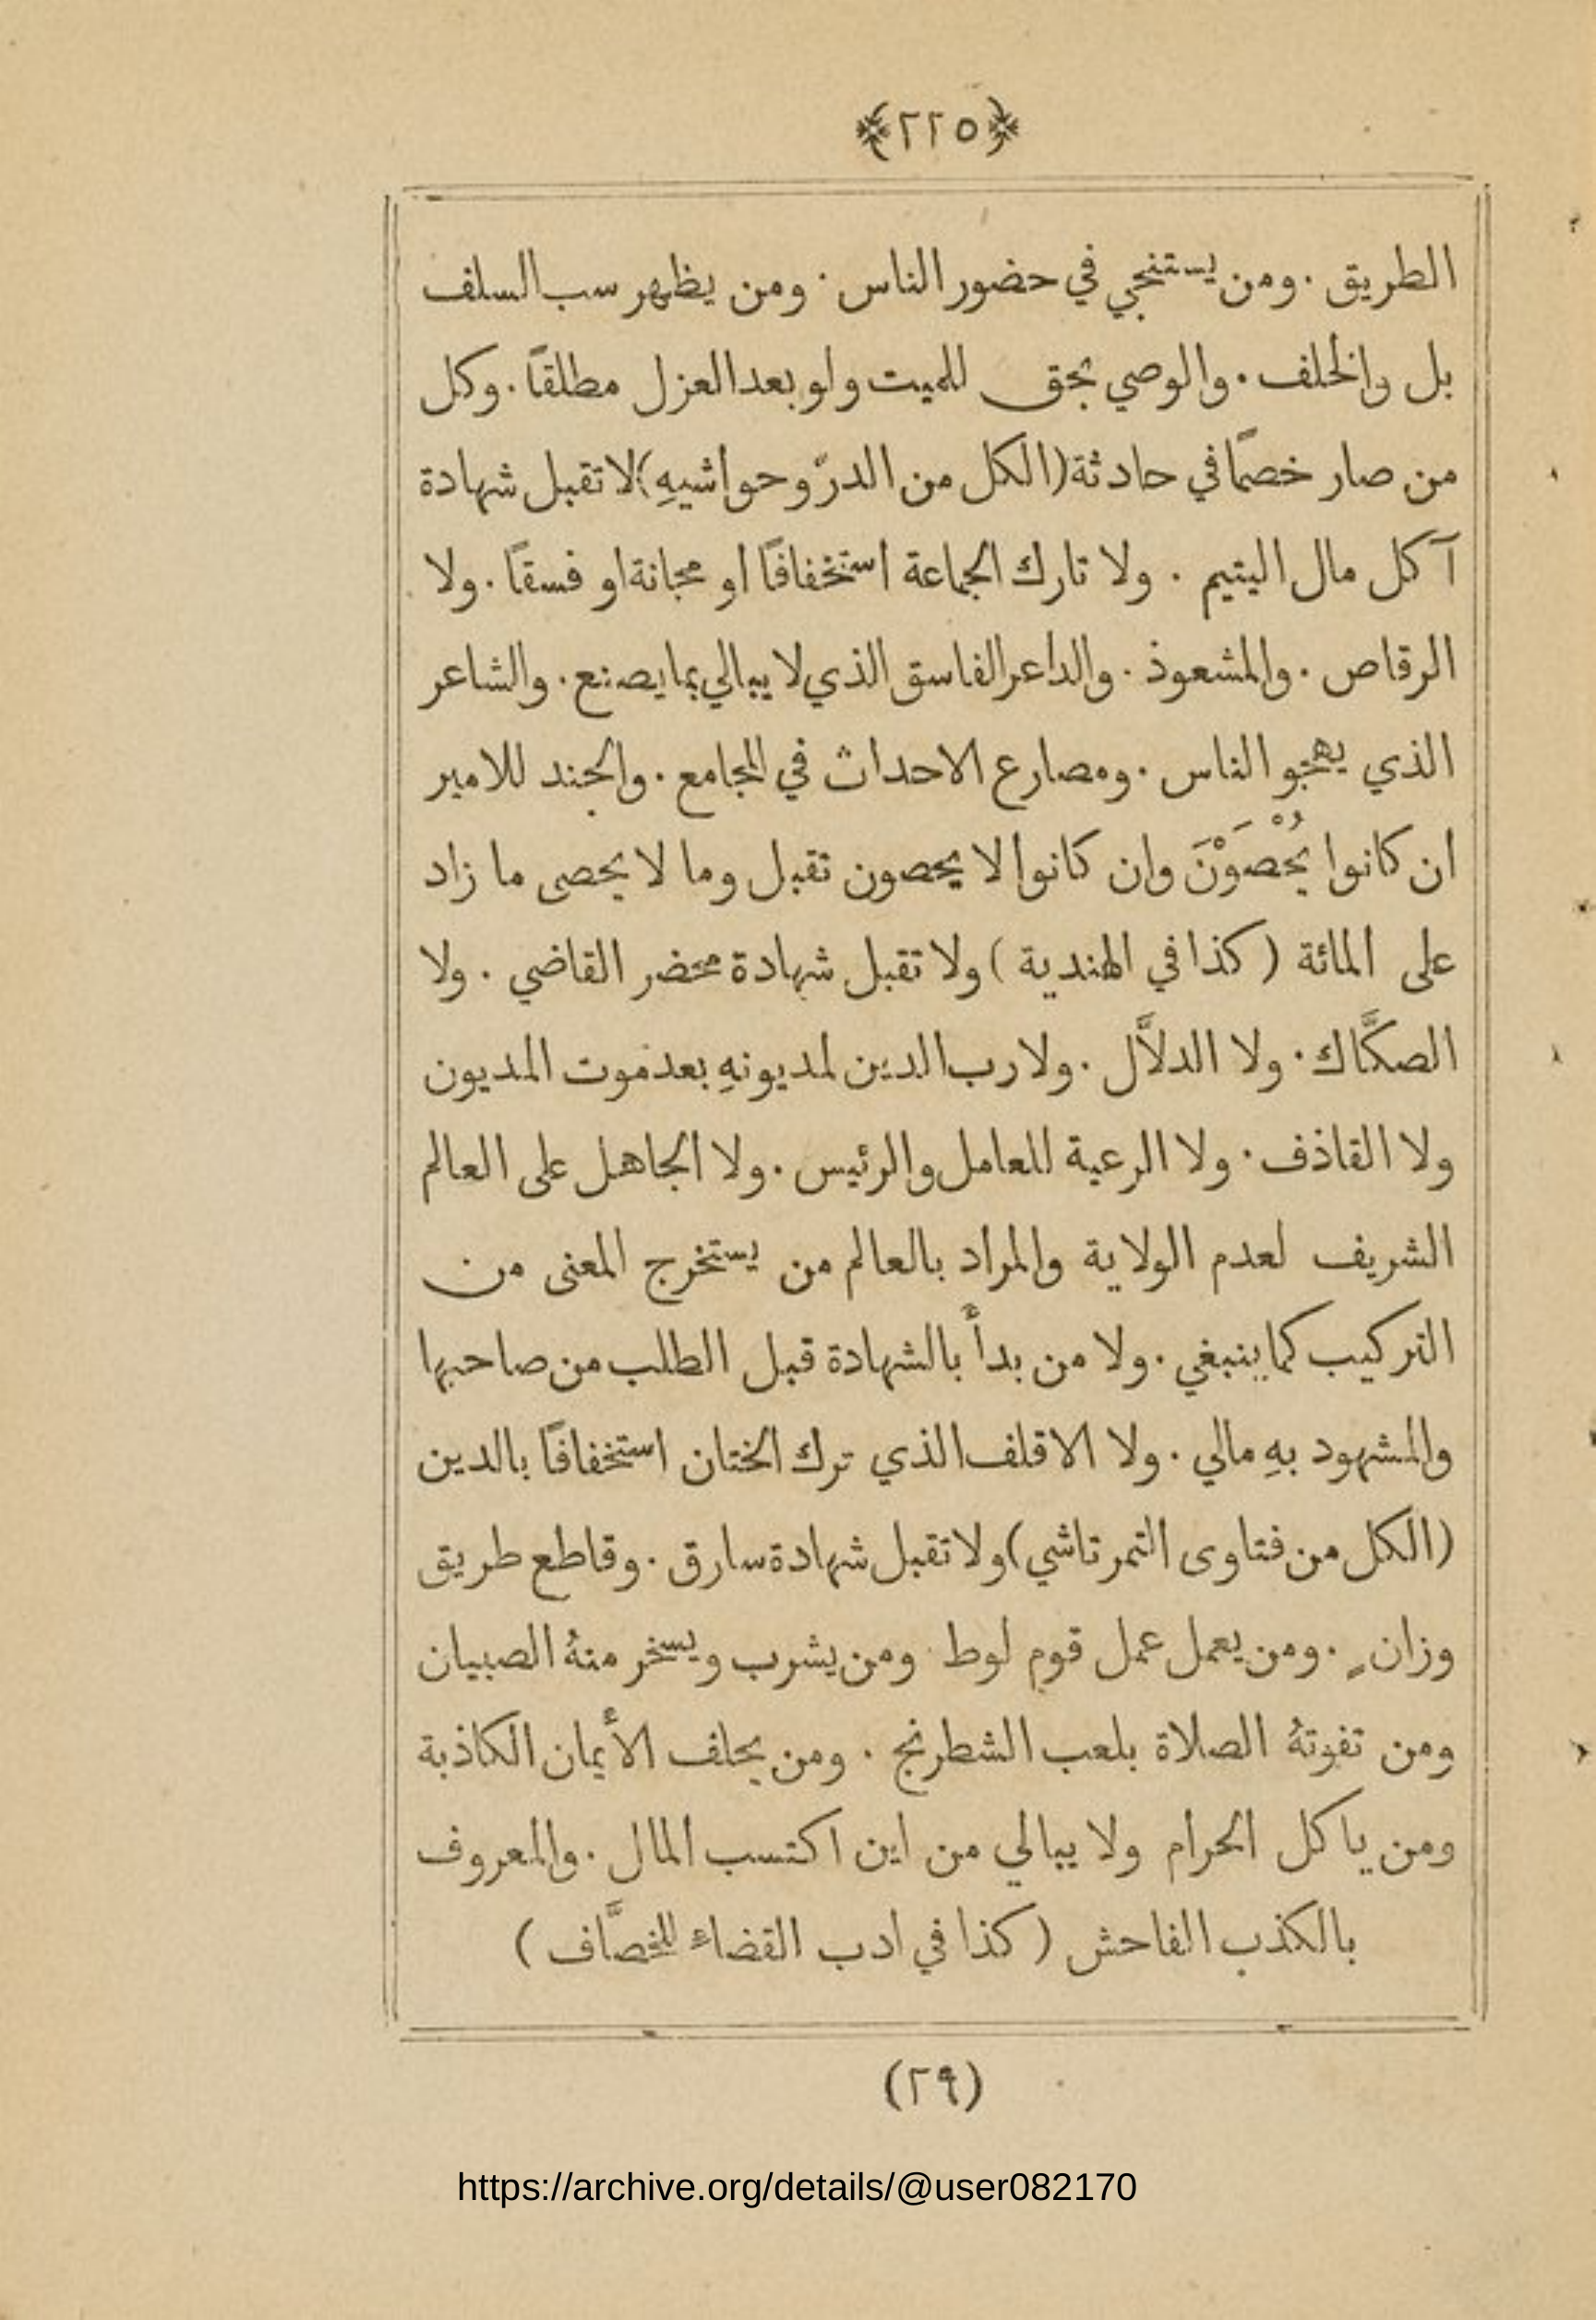 ﴿٢٢٥﴾
الطريق . ومن يستنجي في حضور الناس . ومن يظهر سب السلف
بل والخلف . والوصي بحق للميت ولو بعد العزل مطلقًا . وكل
من صار خصمًا في حادثة (الكل من الدرّ وحواشيهِ) لا تقبل شهادة
آكل مال اليتيم . ولا تارك الجماعة استخفافًا او مجانة او فسقًا . ولا
الرقاص . والمشعوذ . والداعر الفاسق الذي لا يبالي بما يصنع . والشاعر
الذي يهجو الناس . ومصارع الاحداث في المجامع . والجند للامير
ان كانوا يُحْصَوْنَ وان كانوا لا يحصون تقبل وما لا يحصى ما زاد
على المائة ( كذا في الهندية ) ولا تقبل شهادة محضر القاضي . ولا
الصكَّاك . ولا الدلاَّل . ولا رب الدين لمديونهِ بعد موت المديون
ولا القاذف . ولا الرعية للعامل والرئيس . ولا الجاهل على العالم
الشريف لعدم الولاية والمراد بالعالم من يستخرج المعنى من
التركيب كما ينبغي . ولا من بدأ بالشهادة قبل الطلب من صاحبها
والمشهود بهِ مالي . ولا الاقلف الذي ترك الختان استخفافًا بالدين
(الكل من فتاوى التمرتاشي) ولا تقبل شهادة سارق . وقاطع طريق
وزانٍ . ومن يعمل عمل قوم لوط . ومن يشرب ويسخر منهُ الصبيان
ومن تفوتهُ الصلاة بلعب الشطرنج . ومن يحلف الأيمان الكاذبة
ومن ياكل الحرام ولا يبالي من اين اكتسب المال . والمعروف
بالكذب الفاحش ( كذا في ادب القضاء للخصَّاف )
(٢٩)
https://archive.org/details/@user082170